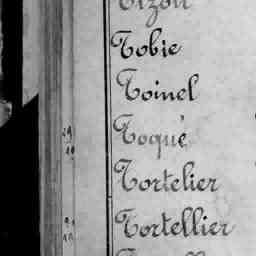 Tizon
Tobie
Toinel
Toqué
Tortelier
Tortellier